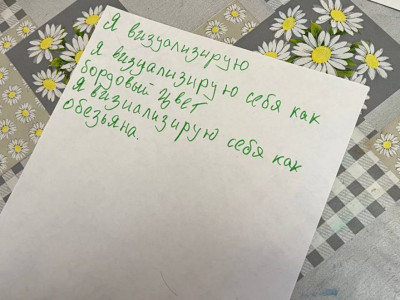 Я визуализирую
Я визуализирую себя как
бордовый цвет
Я визиализирую себя как
обезьяна.